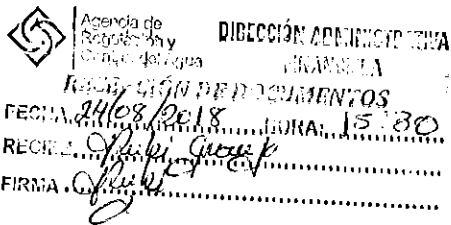 Agencia de
Regulación y
Control del Agua
DIRECCIÓN ADMINISTRATIVA
FINANCIERA
RECEPCIÓN DE DOCUMENTOS
FECHA 24/08/2018 HORA: 15:30
RECIBE
FIRMA